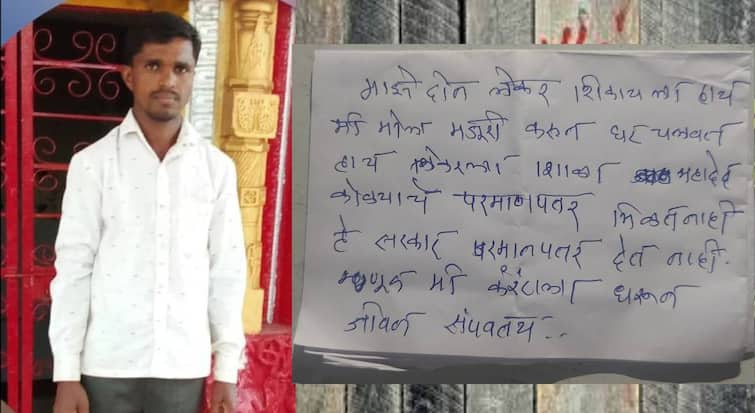 माझे दोन लेकर शिकाय ला हायं
मी मोल मजुरी करुन घर चलवत
हाय लेकरला शिाळा महादेव
कोळयाचे परमाणपतर मिळत नाही
हे सरकार परमानपतर देत नाही.
म्हणून मी करंटाला धरून
जीवन संपवतय..